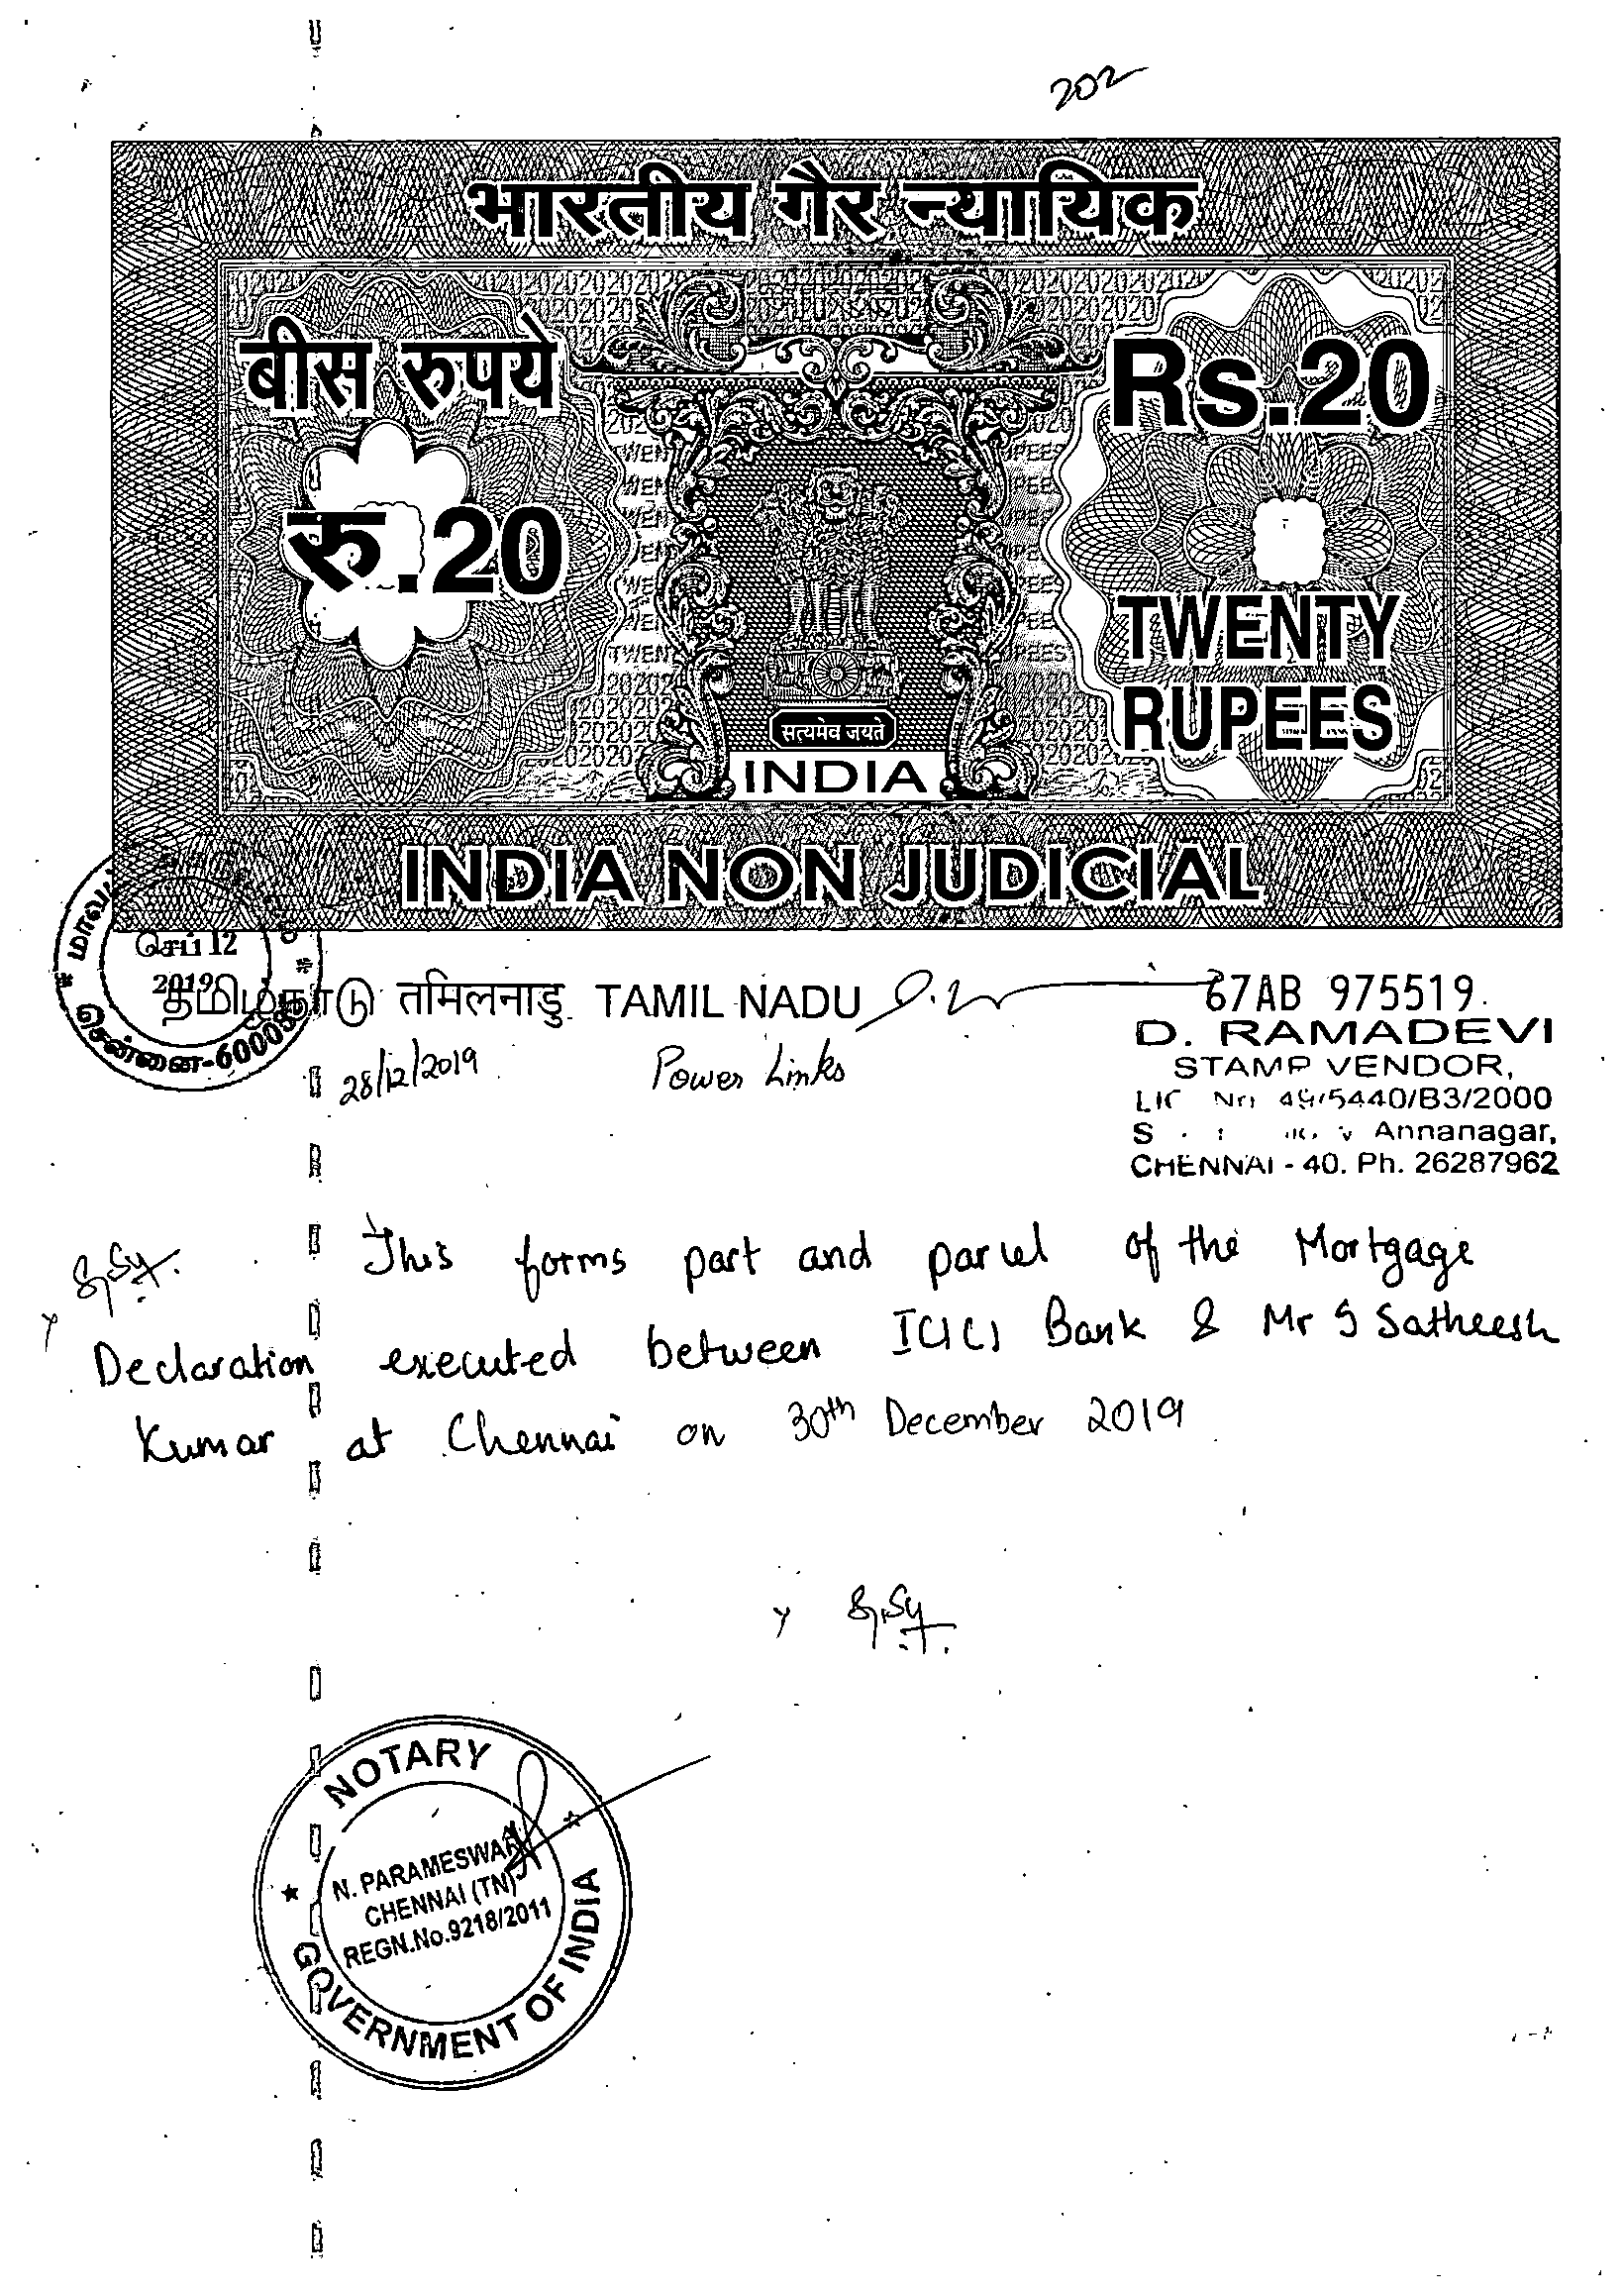 202
भारतीय गैर न्यायिक
बीस रुपये
Rs.20
रु.20
TWENTY
RUPEES
सत्यमेव जयते
INDIA
INDIA NON JUDICIAL
செப் 12
2019
சென்னை-600
தமிழ்நாடு तमिलनाडु TAMIL NADU
67AB 975519
D. RAMADEVI
STAMP VENDOR,
28/12/2019
Power Links
49/5440/B3/2000
Annanagar,
CHENNAI - 40. Ph. 26287962
This forms part and parcel of the Mortgage
Declaration executed between ICICI Bank & Mr S Satheesh
Kumar at Chennai on 30th December 2019
NOTARY
N. PARAMESWAR
CHENNAI (TN)
REGN.No.9218/2011
GOVERNMENT OF INDIA